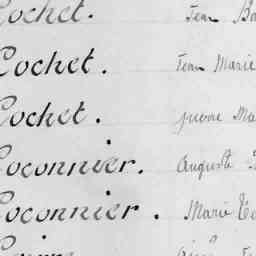 Cochet. Jean Ba
Cochet. Jean Marie
Cochet. pierre Ma
Coconnier. Auguste
Coconnier. Marie